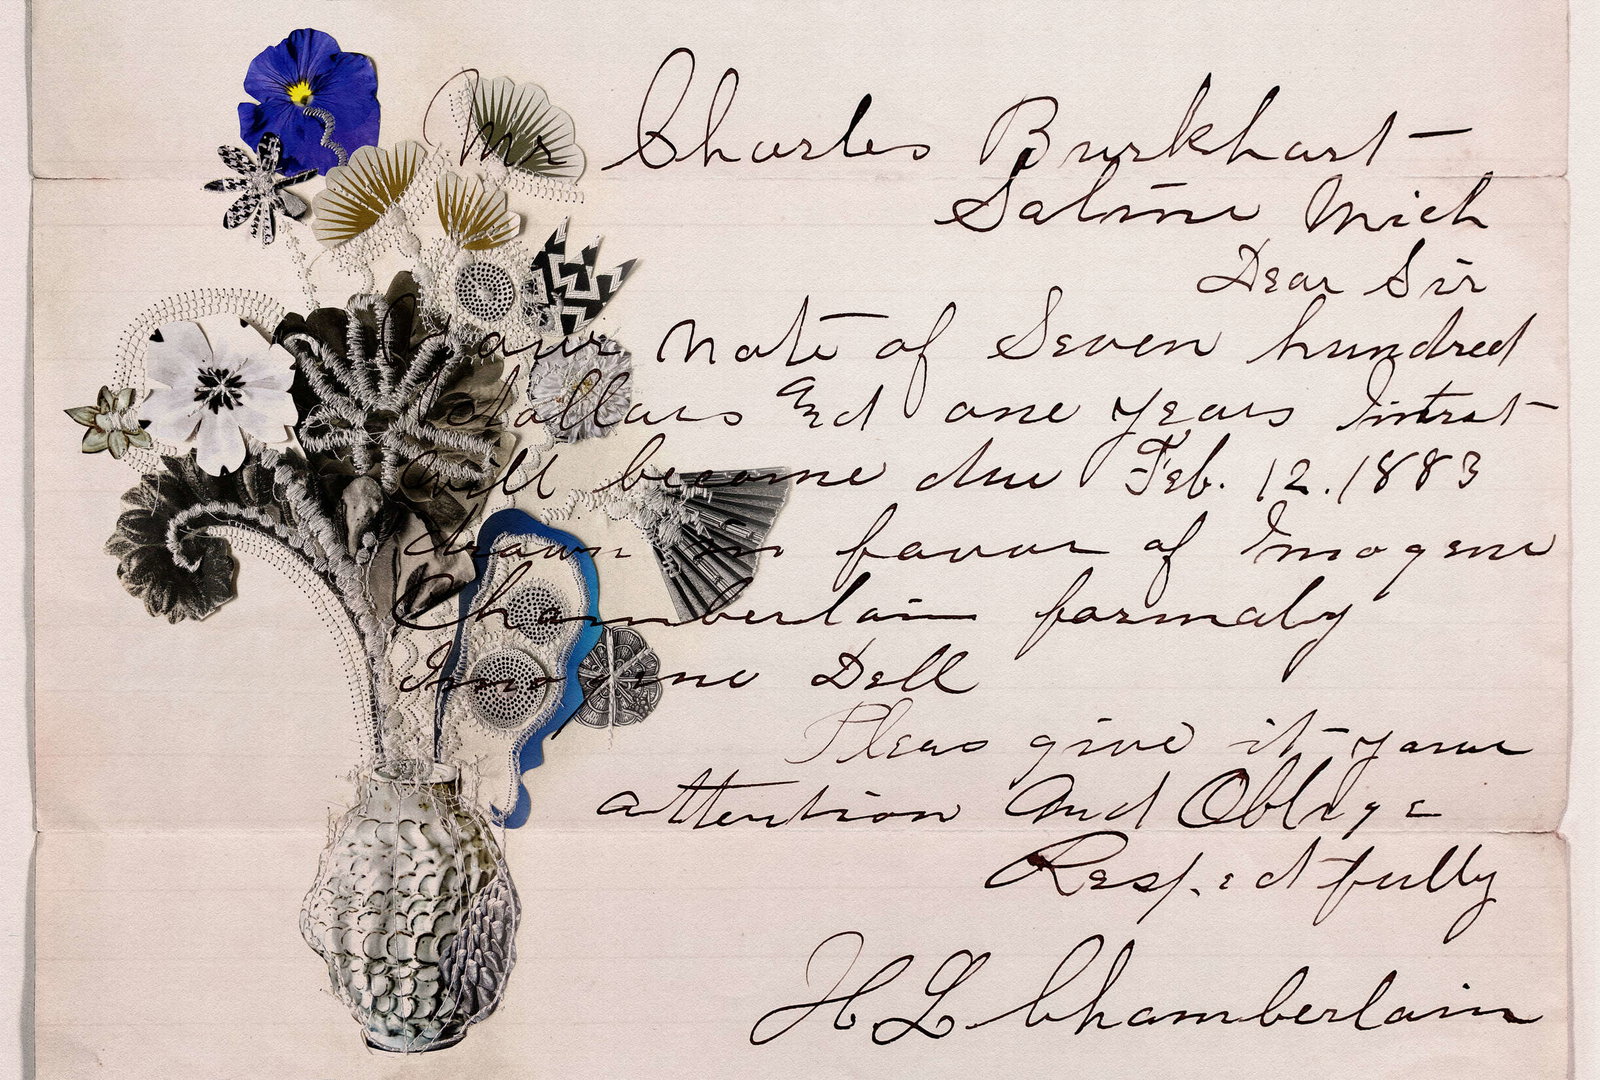 Mr Charles Burkhart
Saline Mich
Dear Sir
Your Note of Seven hundred
dollars and one years Intrst
will become due Feb. 12. 1883
drawn in favour of Imogene
Chamberlain formaly
Imogene Dell
Pleas give it your
attention And Oblige
Respectfully
H L Chamberlain